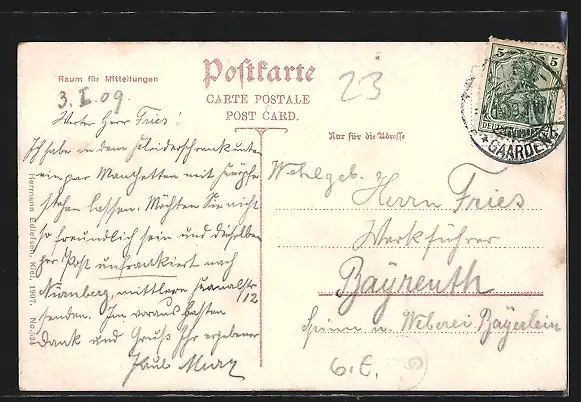 Raum für Mitteilungen
Postkarte
CARTE POSTALE
POST CARD.
Nur für die Adresse
23
3. I. 09.
Werter Herr Fries!
Ich habe in dem Kleiderschrank unten
ein par Manchetten mit Knöpfe
stehen lassen. Möchten Sie nicht
so freundlich sein und dieselben
per Post unfrankiert nach
Nürnberg, mittlere Kanalstr
12
senden. Im voraus besten
Dank und Gruß Ihr ergebener
Paul
Wohlgeb.
Herrn Fries
Werkführer
Bayreuth
Spinn u. Weberei Bayerlein
Hermann Edlefsen, Kiel, 1907. No. 324
5 5
GAARDEN